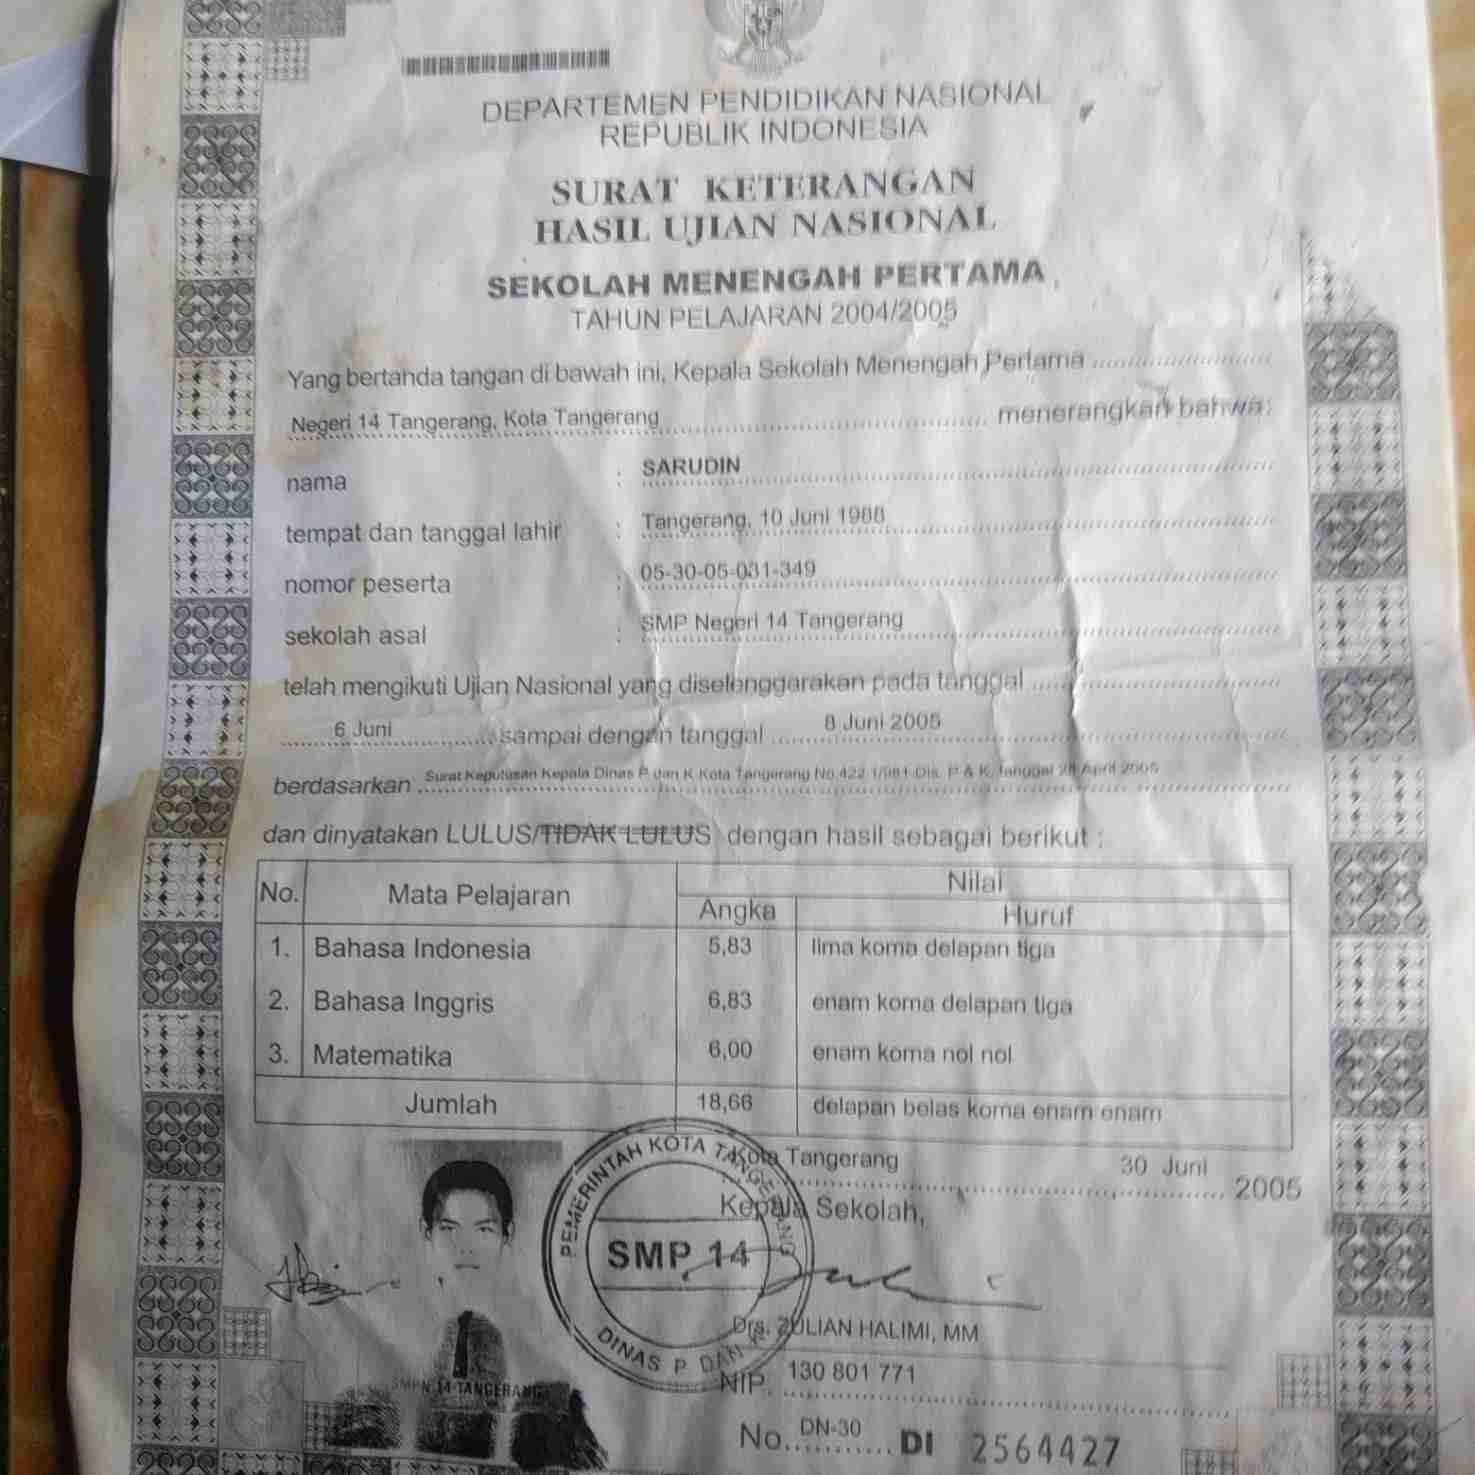 DEPARTEMEN PENDIDIKAN NASIONAL
REPUBLIK INDONESIA
SURAT KETERANGAN
HASIL UJIAN NASIONAL
SEKOLAH MENENGAH PERTAMA
TAHUN PELAJARAN 2004/2005
Yang bertanda tangan di bawah ini, Kepala Sekolah Menengah Pertama
Negeri 14 Tangerang, Kota Tangerang menerangkan bahwa:
nama : SARUDIN
tempat dan tanggal lahir : Tangerang, 10 Juni 1988
nomor peserta : 05-30-05-031-349
sekolah asal : SMP Negeri 14 Tangerang
telah mengikuti Ujian Nasional yang diselenggarakan pada tanggal
6 Juni sampai dengan tanggal 8 Juni 2005
berdasarkan Surat Keputusan Kepala Dinas P dan K Kota Tangerang No.422.1/981-Dis. P & K, tanggal 28 April 2005
dan dinyatakan LULUS/TIDAK LULUS dengan hasil sebagai berikut :
No. Mata Pelajaran Nilai
Angka Huruf
1. Bahasa Indonesia 5,83 lima koma delapan tiga
2. Bahasa Inggris 6,83 enam koma delapan tiga
3. Matematika 6,00 enam koma nol nol
Jumlah 18,66 delapan belas koma enam enam
Kota Tangerang 30 Juni 2005
Kepala Sekolah,
PEMERINTAH KOTA TANGERANG
SMP 14
DINAS P DAN K
Drs. ZULIAN HALIMI, MM
NIP. 130 801 771
SMPN 14 TANGERANG
No. DN-30 DI 2564427